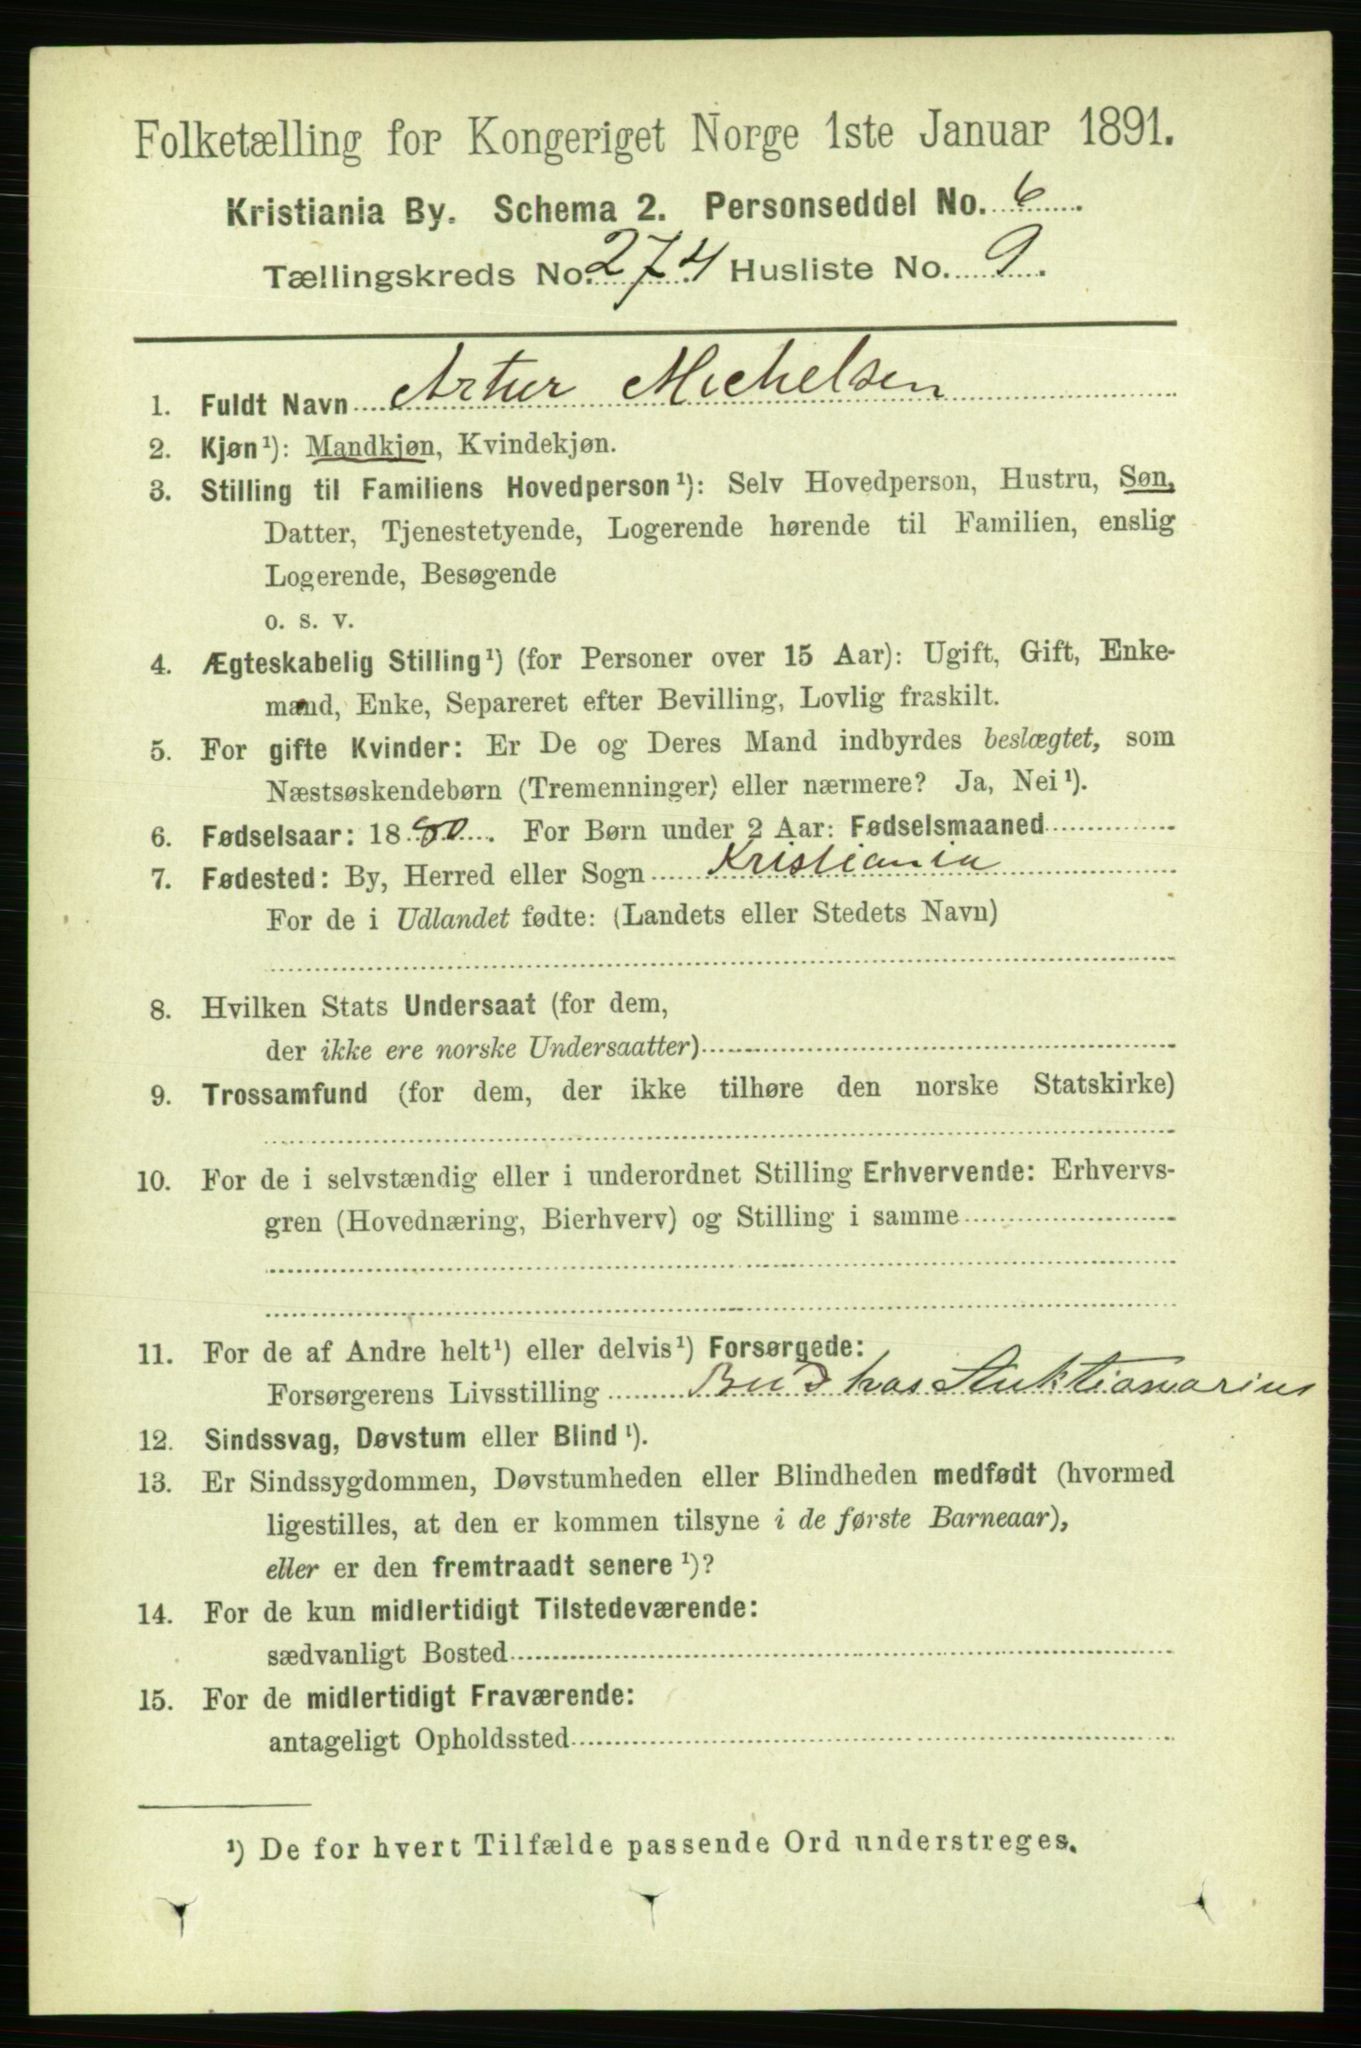 Folketælling for Kongeriget Norge 1ste Januar 1891.
Kristiania By. Schema 2. Personseddel No. 6.
Tællingskreds No. 274 Husliste No. 9.
1. Fuldt Navn Artur Michelsen
2. Kjøn¹): Mandkjøn, Kvindekjøn.
3. Stilling til Familiens Hovedperson¹): Selv Hovedperson, Hustru, Søn,
Datter, Tjenestetyende, Logerende hørende til Familien, enslig
Logerende, Besøgende
o. s. v.
4. Ægteskabelig Stilling¹) (for Personer over 15 Aar): Ugift, Gift, Enke-
mand, Enke, Separeret efter Bevilling, Lovlig fraskilt.
5. For gifte Kvinder: Er De og Deres Mand indbyrdes beslægtet, som
Næstsøskendebørn (Tremenninger) eller nærmere? Ja, Nei¹).
6. Fødselsaar: 1880. For Børn under 2 Aar: Fødselsmaaned
7. Fødested: By, Herred eller Sogn Kristiania
For de i Udlandet fødte: (Landets eller Stedets Navn)
8. Hvilken Stats Undersaat (for dem,
der ikke ere norske Undersaatter)
9. Trossamfund (for dem, der ikke tilhøre den norske Statskirke)
10. For de i selvstændig eller i underordnet Stilling Erhvervende: Erhvervs-
gren (Hovednæring, Bierhverv) og Stilling i samme
11. For de af Andre helt¹) eller delvis¹) Forsørgede:
Forsørgerens Livsstilling Bud hos Auktionarius
12. Sindssvag, Døvstum eller Blind¹).
13. Er Sindssygdommen, Døvstumheden eller Blindheden medfødt (hvormed
ligestilles, at den er kommen tilsyne i de første Barneaar),
eller er den fremtraadt senere¹)?
14. For de kun midlertidigt Tilstedeværende:
sædvanligt Bosted
15. For de midlertidigt Fraværende:
antageligt Opholdssted
¹) De for hvert Tilfælde passende Ord understreges.